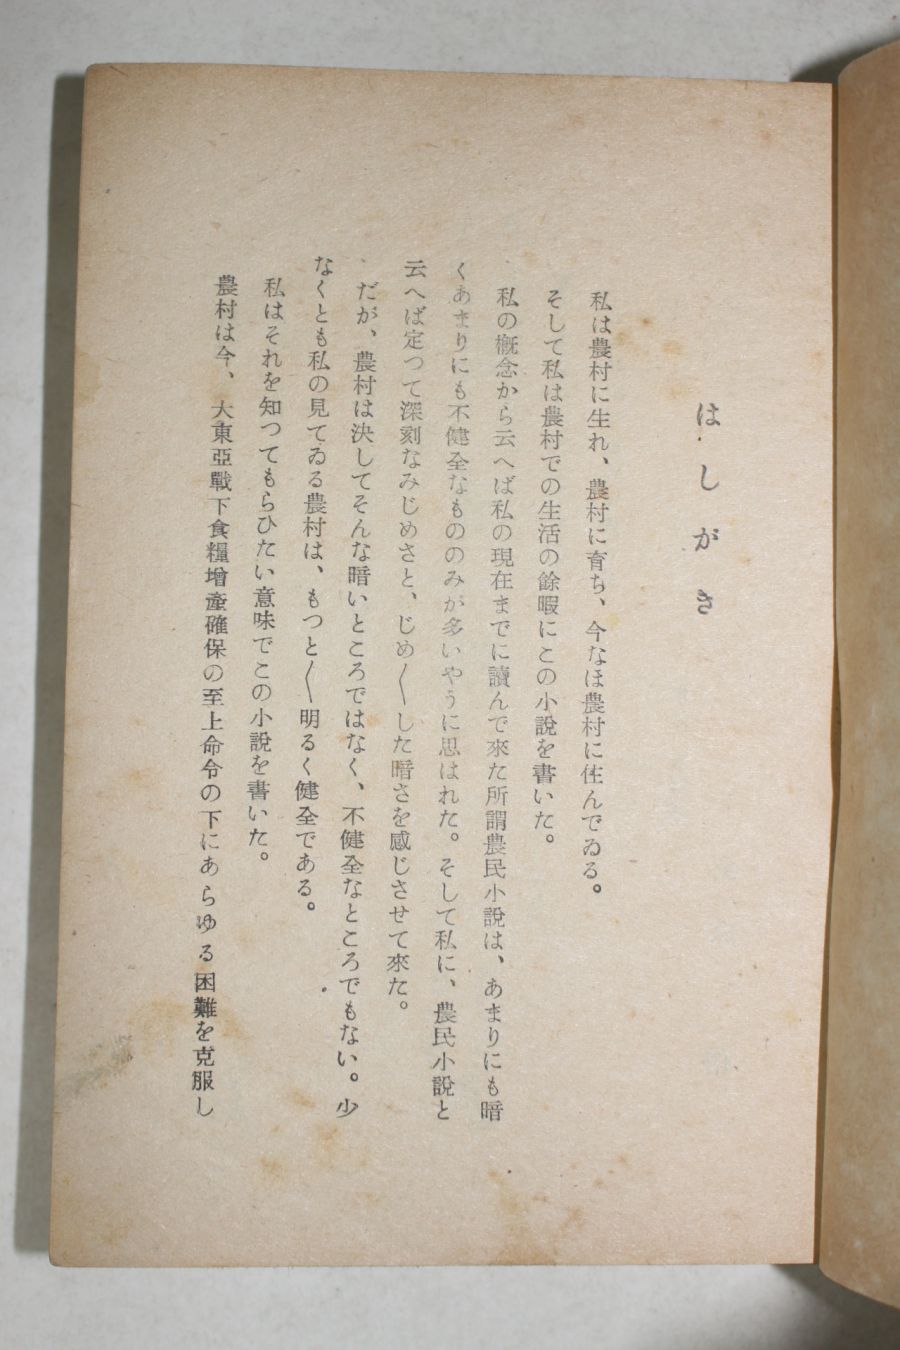 はしがき
私は農村に生れ、農村に育ち、今なほ農村に住んでゐる。
そして私は農村での生活の餘暇にこの小說を書いた。
私の概念から云へば私の現在までに讀んで來た所謂農民小說は、あまりにも暗
くあまりにも不健全なもののみが多いやうに思はれた。そして私に、農民小說と
云へば定つて深刻なみじめさと、じめ〱した暗さを感じさせて來た。
だが、農村は決してそんな暗いところではなく、不健全なところでもない。少
なくとも私の見てゐる農村は、もつと〱明るく健全である。
私はそれを知つてもらひたい意味でこの小說を書いた。
農村は今、大東亞戰下食糧增產確保の至上命令の下にあらゆる困難を克服し